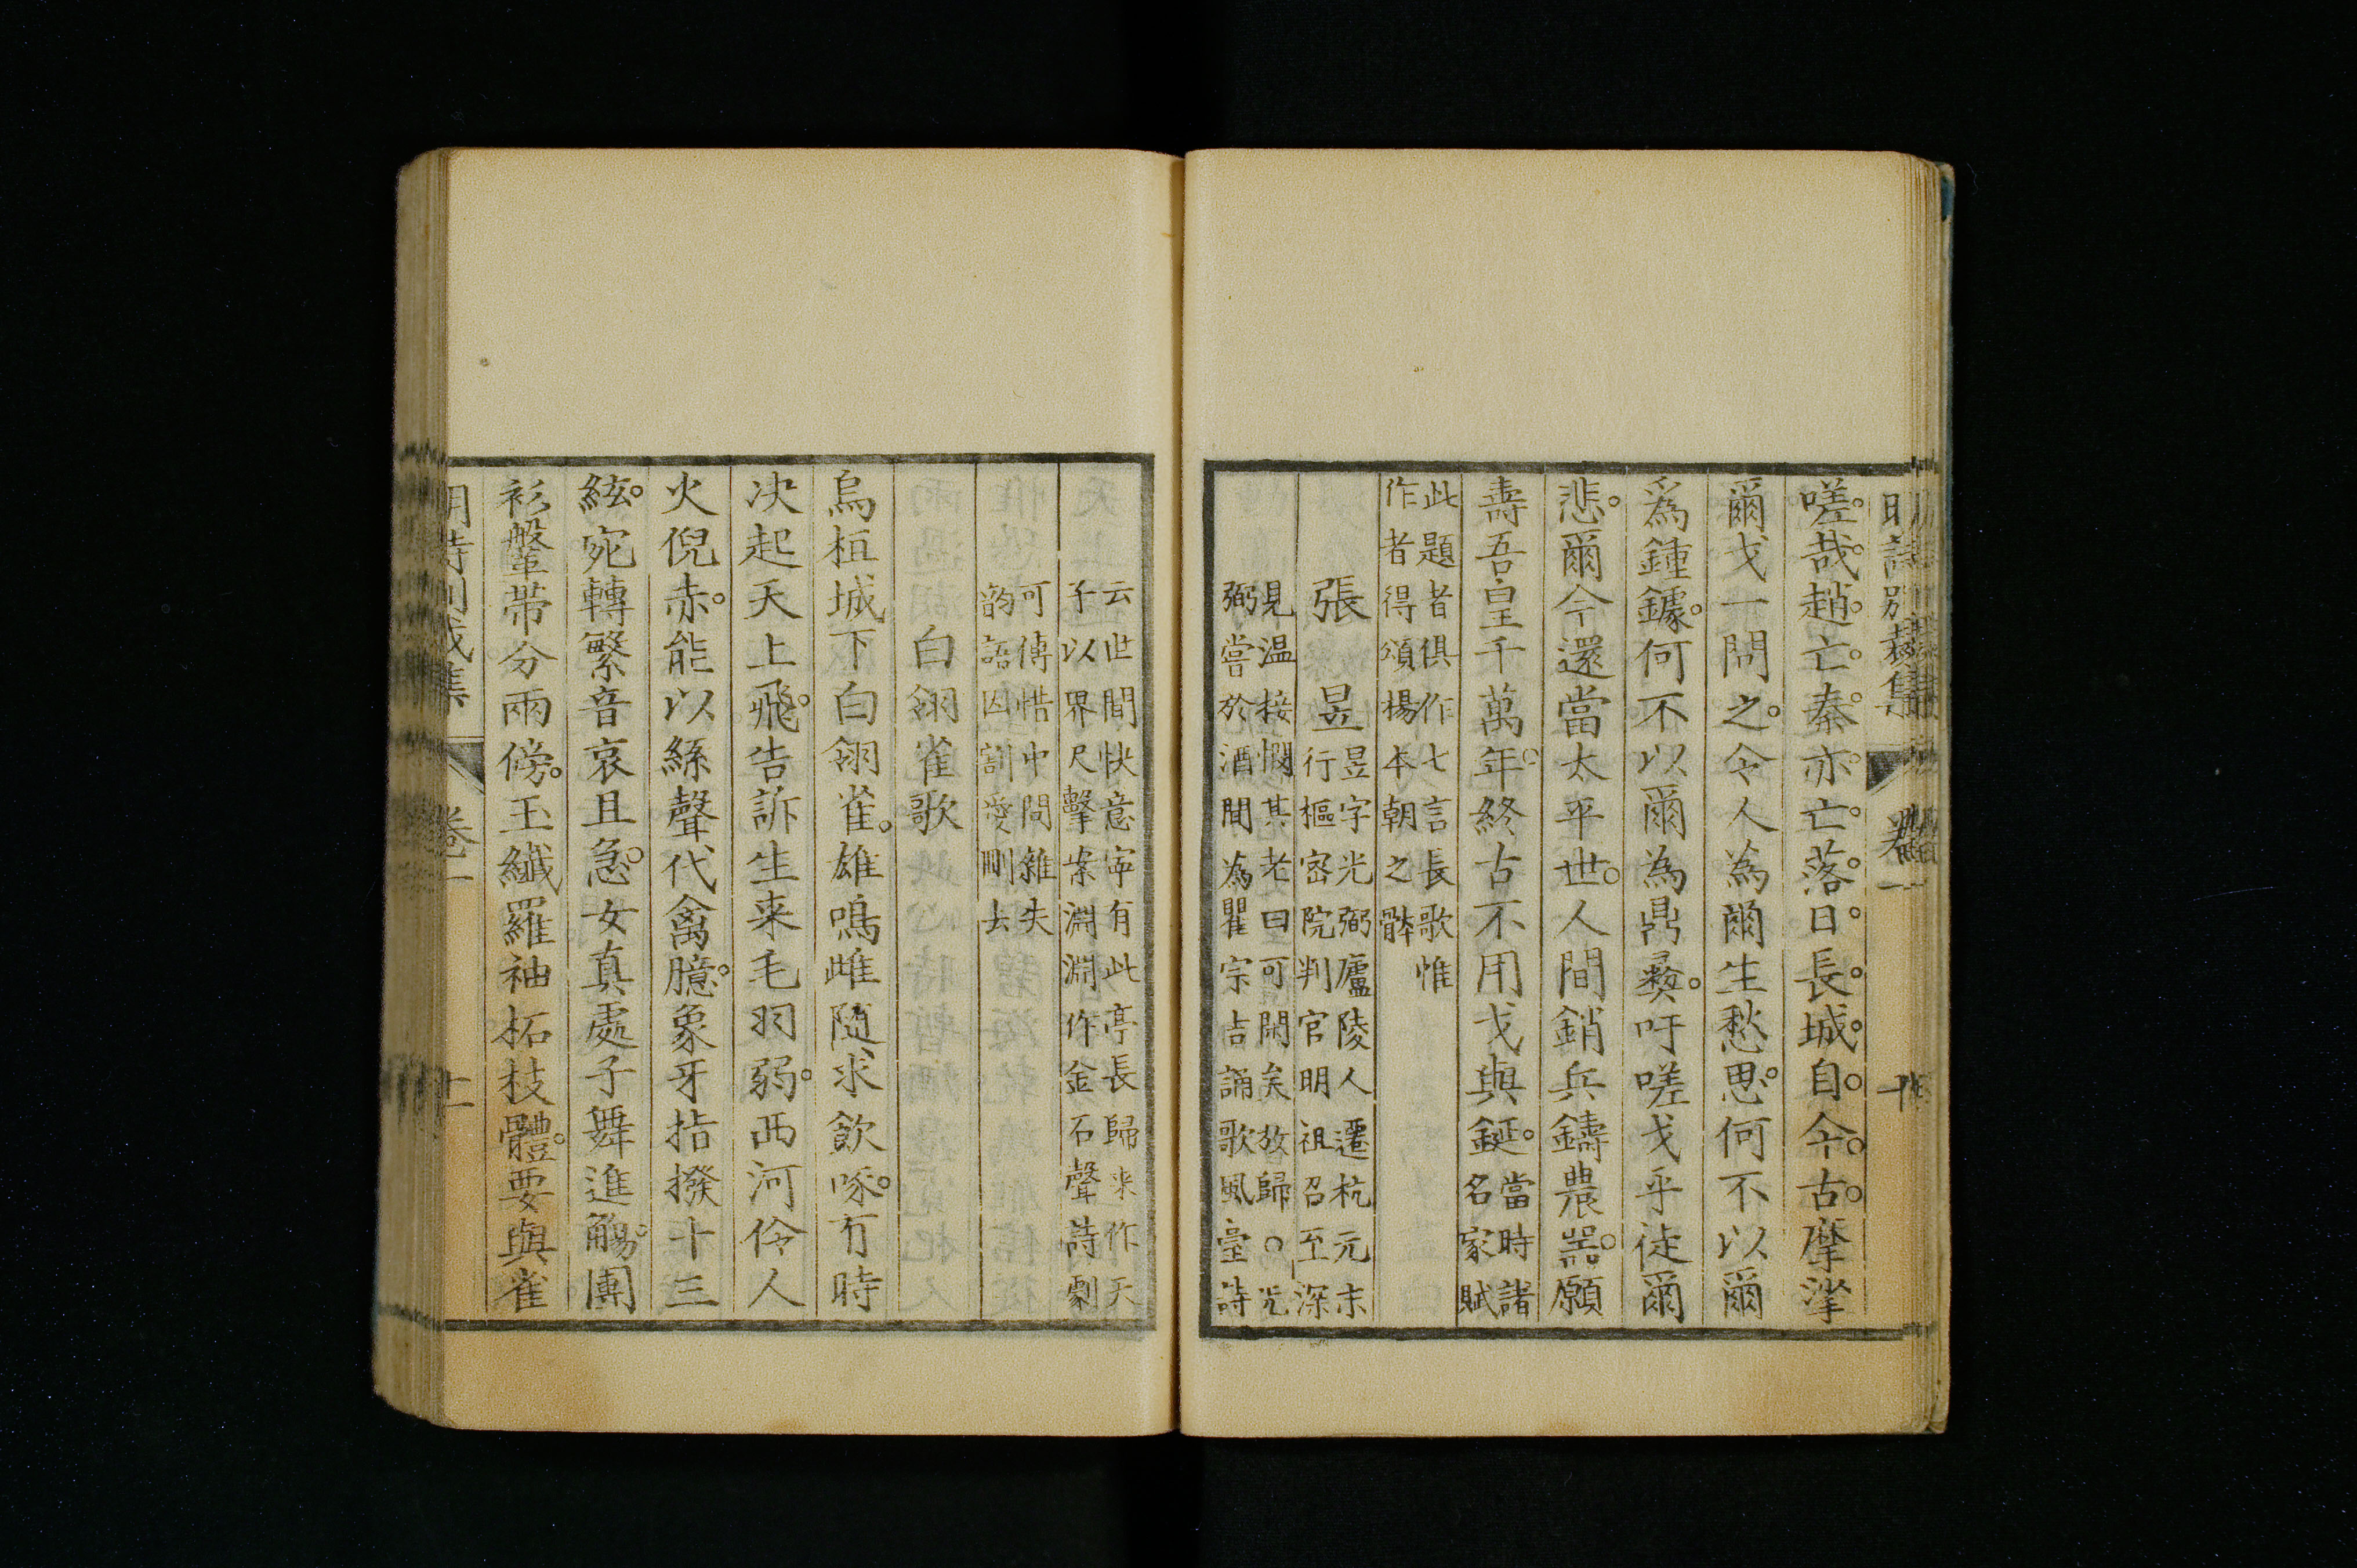 明詩別裁集 卷一 十
嗟哉趙亡秦亦亡落日長城自今古摩挲
爾戈一問之令人為爾生愁思何不以爾
爲鍾鐻何不以爾為鼎彜吁嗟戈乎徒爾
悲爾今還當太平世人間銷兵鑄農器願
壽吾皇千萬年終古不用戈與鋋當時諸
名家賦
此題者俱作七言長歌惟
作者得頌楊本朝之體
張昱昱字光弼廬陵人遷杭元末
行樞密院判官明祖召至深
見温接憫其老曰可閒矣放歸○光
弼嘗於酒間為瞿宗吉誦歌風臺詩
云世間快意寜有此亭長歸来作天
子以界尺擊案淵淵作金石聲詩劇
可傳惜中間雜失
韵語因割愛刪去
白翎雀歌
烏桓城下白翎雀雄鳴雌隨求飲啄有時
决起天上飛告訴生来毛羽弱西河伶人
火倪赤能以絲聲代禽臆象牙指撥十三
絃宛轉繁音哀且急女真處子舞進觴團
衫鞶帶分兩傍玉纖羅袖柘枝體要與雀
明詩別裁集 卷一 十一